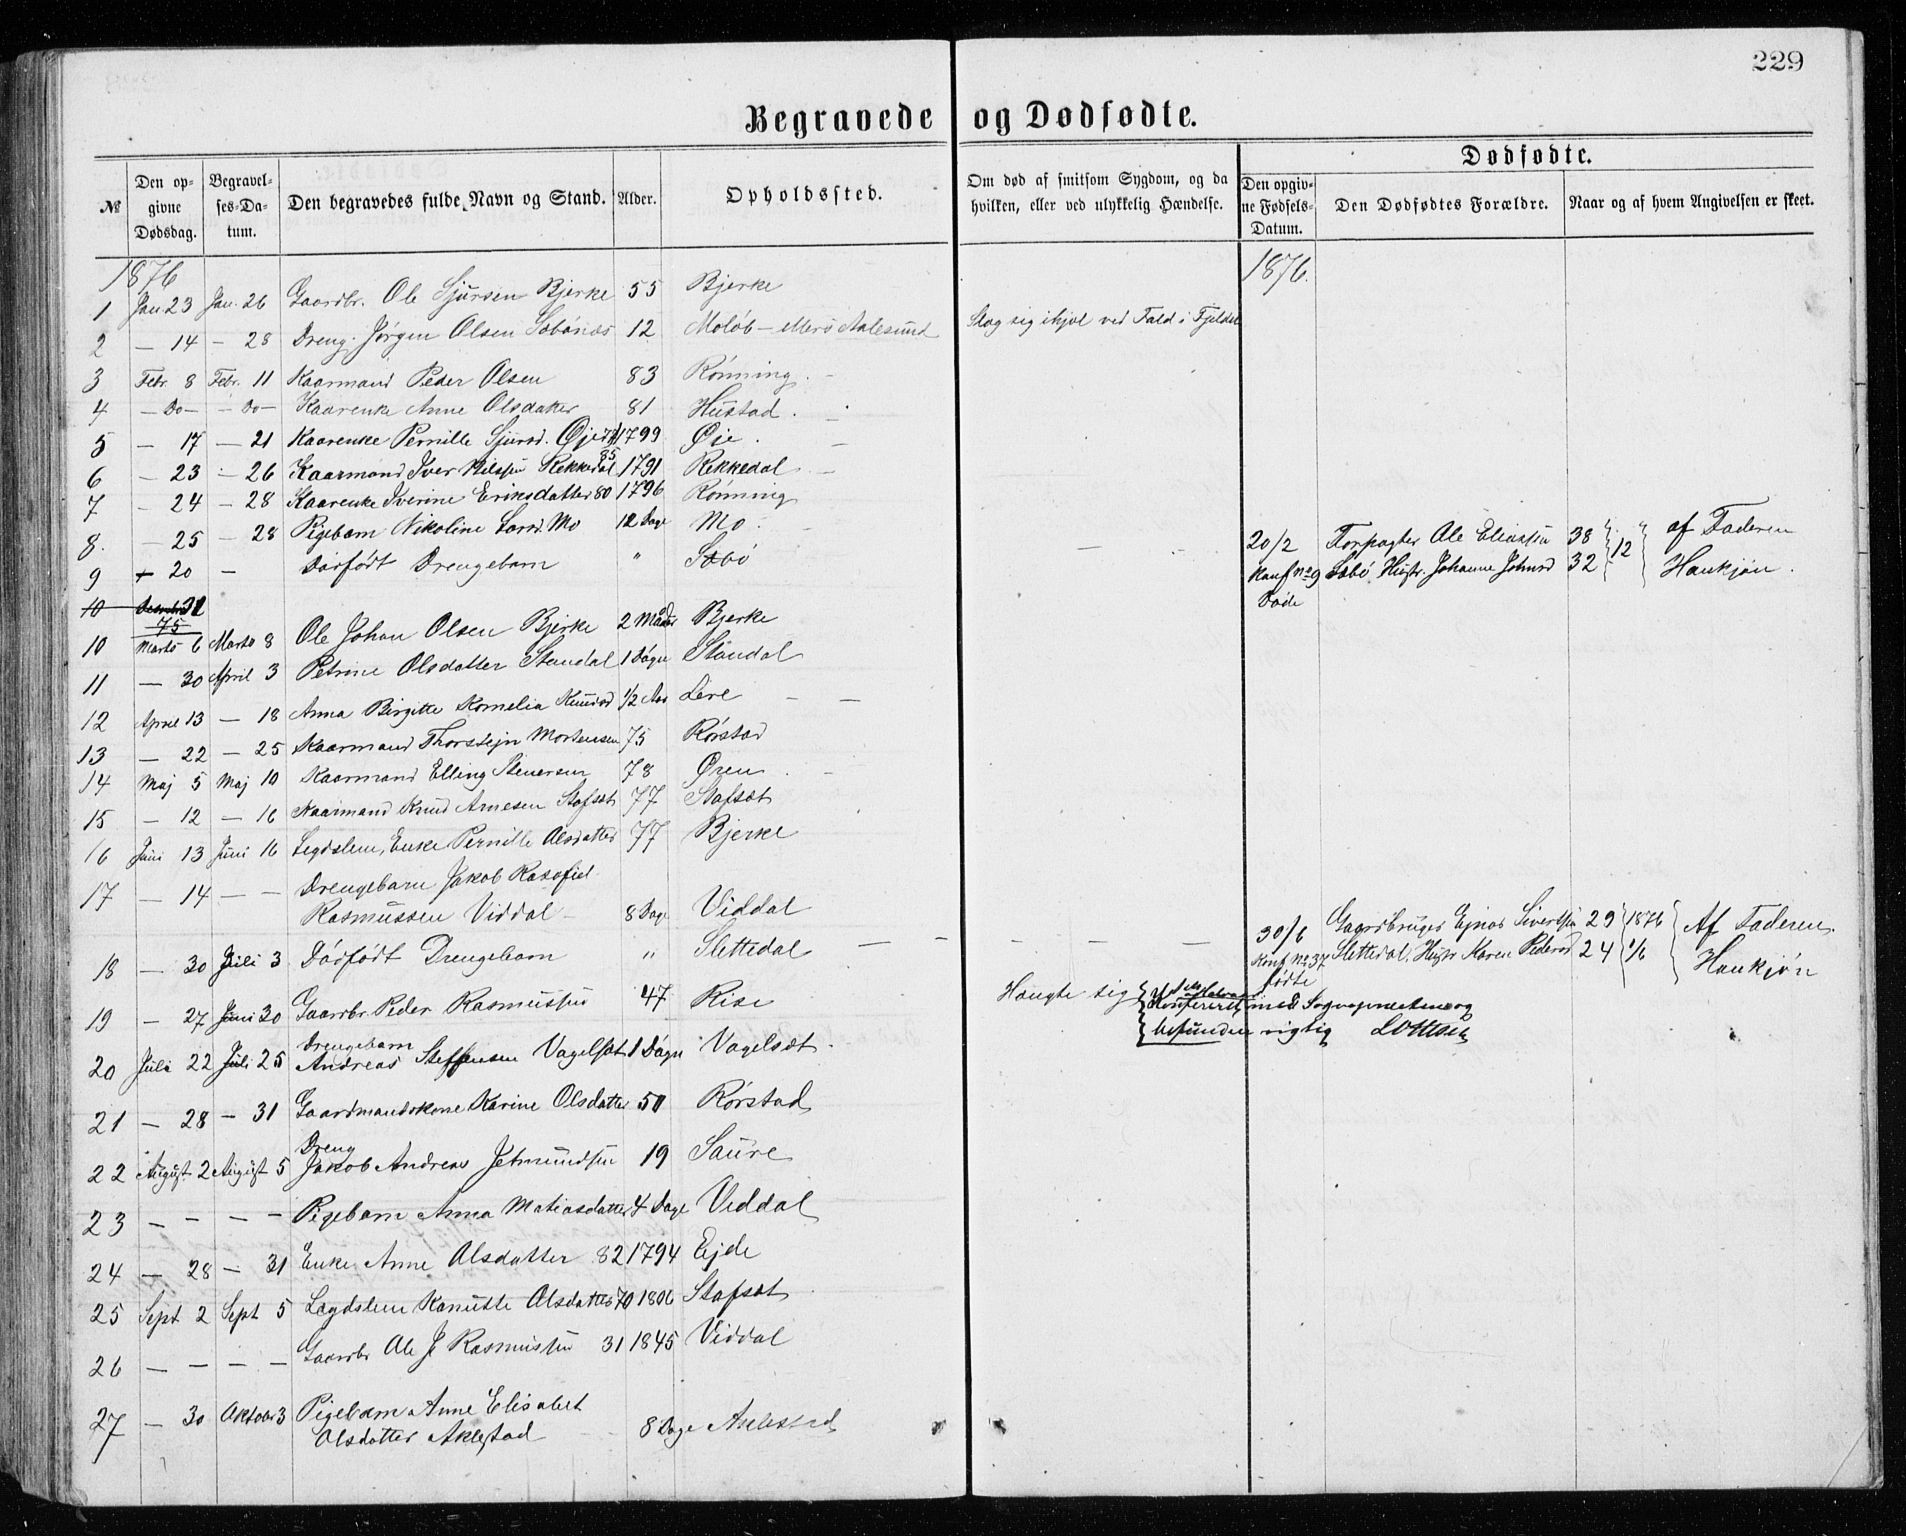 229
Begravede og Dødfødte.
№
Den opgivne Dødsdag.
Begravelses-Datum.
Den begravedes fulde Navn og Stand.
Alder.
Opholdssted.
Om død af smitsom Sygdom, og da hvilken, eller ved ulykkelig Hændelse.
Dødfødte.
Den opgivne Fødsels-Datum.
Den Dødfødtes Forældre.
Naar og af hvem Angivelsen er skeet.
1876 1876.
1 Jan 23 Jan. 26 Gaardbr. Ole Sjursen Bjerke 55 Bjerke
2 — 14 — 28 Dreng. Jørgen Olsen Sæbønes 12 Aalesund Slog sig ihjel ved Fald i Fjeldet
3 Febr. 8 Febr. 11 Kaarmand Peder Olsen 83 Rønning
4 — Do — — Do — Kaarenke Anne Olsdatter 81 Hustad
5 — 17 — 21 Kaarenke Pernille Sjursd. Øje 1799 Øie
6 — 23 — 26 Kaarmand Iver Nilssen Rekkedal 85 1791 Rekkedal
7 — 24 — 28 Kaarenke Iverine Eriksdatter 80 1796 Rønning
8. — 25 — 28 Pigebarn Nikoline Larsd. Mo 12 Dage Mo
9 + 20 — Dødfødt Drengebarn " Sæbø 20/2 Forpagter Ole Eliassen 38 } 12 } af Faderen
Konf no 9 Sæbø, Hustr. Johanne Johnsd 32 Hankjøn.
Døde
10 31
75
10 Marts 6 Marts 8 Ole Johan Olsen Bjerke 2 Maader Bjerke
11 — 30 April 3 Petrine Olsdatter Standal 1 Døgn Standal
12 April 13 — 18 Anna Birgitte Kornelia Knudsd 1/2 Aar Leire
13 — 22 — 25 Kaarmand Thorstejn Mortensen 75 Rørstad
14 Maj 5 Maj 10 Kaarmand Elling Stenersen 78 Øren
15 — 12 — 16 Kaarmand Knud Arnesen Stafset 77 Stafset
16 Juni 13 Juni 16 Legdslem, Enke Pernille Olsdatter 77 Bjerke
17 — 14 — — Drengebarn Jakob
Rasmussen Viddal 8 Dage Viddal
18 — 30 Juli 3 Dødfødt Drengebarn " Slettedal 30/6 Gaardbruger Ejnar Sivertsen 29 } 1876 } Af Faderen
Konf no 37 Slettedal, Hustr Karen Pedersd 24 } Hankjøn
fødte
19 — 27 Juni 30 Gaardbr. Peder Rasmussen 47 Rise Hængte sig
Konfereret med
befunden rigtig
20 Juli 22 Juli 25 Drengebarn
Andreas Steffensen Vagelsæt 1 Døgn Vagelsæt
21 — 28 — 31 Gaardmandskone Karine Olsdatter 50 Rørstad
22 August 2 August 5 Dreng
Jakob Andreas Jetmundsen 19 Saure
23 — — — — Pigebarn Anna Matiasdatter 4 Dage Viddal
24 — 28 — 31 Enke Anne Olsdatter 82 1794 Ejde
25 Sept 2 Sept 5 Lægdslem Kanutte Olsdatter 70 1806 Stafset
26 — — — — Gaardbr Ole J Rasmussen 31 1845 Viddal
27 — 30 Oktober 3 Pigebarn Anne Elisabet
Olsdatter Aklestad 8 Dage Aklestad